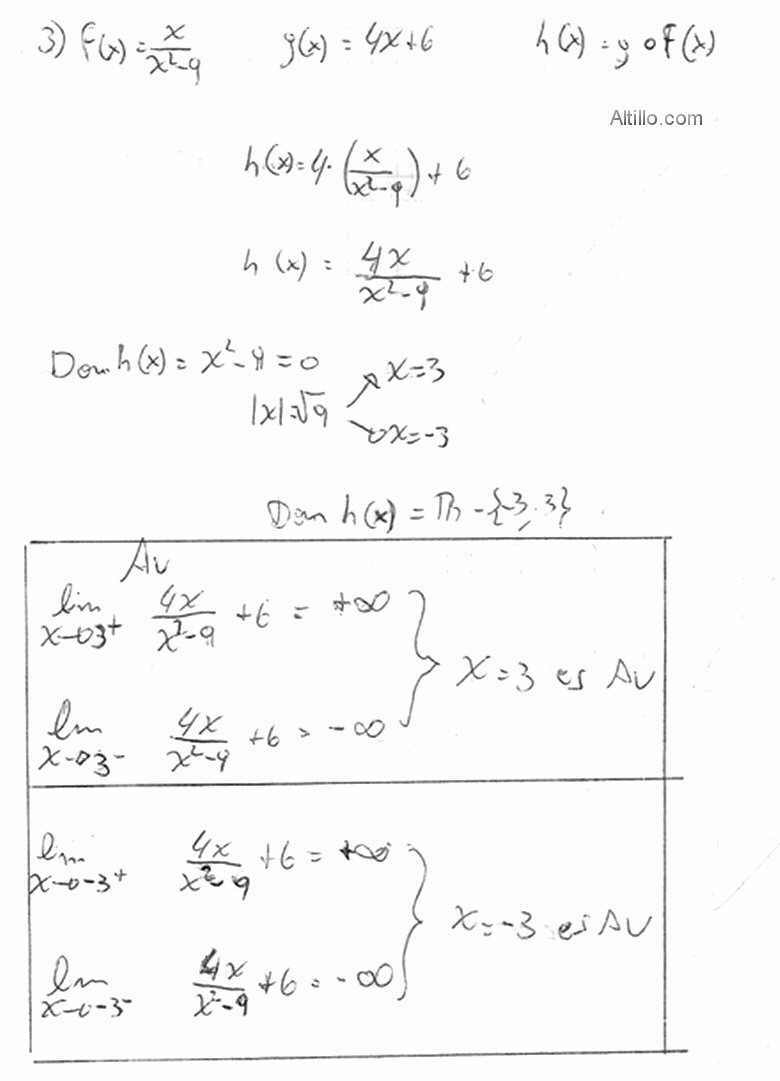 3) f(x) = x/(x²-9)   g(x) = 4x+6   h(x) = g o f(x)
Altillo.com
h(x) = 4·(x/(x²-9)) + 6
h(x) = 4x/(x²-9) + 6
Dom h(x) = x²-9 = 0
|x| = √9
x = 3
x = -3
Dom h(x) = ℝ - {-3, 3}
AV
lim x→3⁺ 4x/(x²-9) + 6 = +∞
x = 3 es AV
lim x→3⁻ 4x/(x²-9) + 6 = -∞
lim x→-3⁺ 4x/(x²-9) + 6 = +∞
x = -3 es AV
lim x→-3⁻ 4x/(x²-9) + 6 = -∞